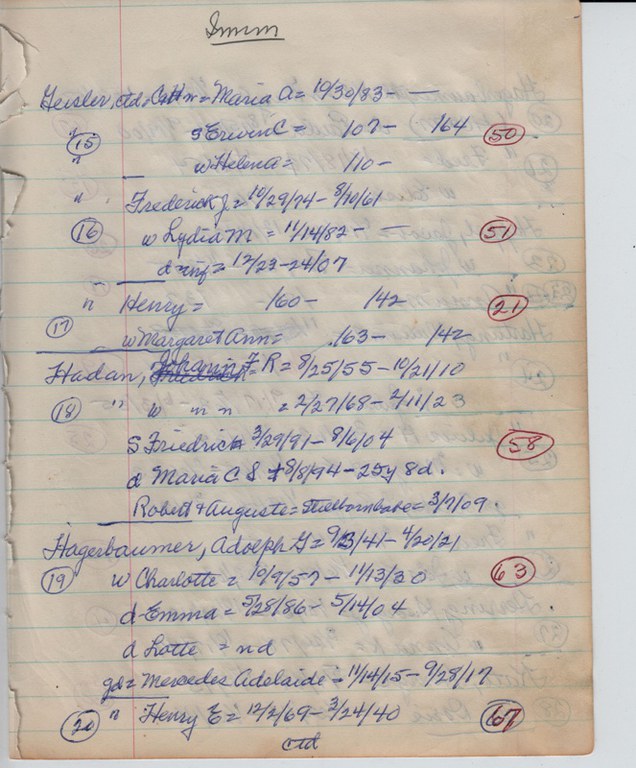 Imm
Geisler, ctd = Maria A = 10/30/83 - —
" 15 s Erwin C = 107 - 164 50
" w Helena = 110 -
" Frederick J = 10/29/74 - 8/10/61
16 w Lydia M = 11/14/82 - — 51
d inf = 12/23-24/07
" Henry = 160 - 142 21
17 w Margaret Ann = 163 - 142
Hadan, Johann F R = 8/25/55 - 10/21/10
18 " w m n = 2/27/68 - 2/11/23
S Friedrich 3/29/91 - 8/6/04 58
d Maria C S + 8/8/94 - 25y 8d.
Robert + Auguste = = 3/7/09.
Hagerbaumer, Adolph G = 9/3/41 - 4/20/21
19 w Charlotte = 10/9/57 - 11/13/30 63
d - Emma = 5/28/86 - 5/14/04
d Lotte = nd
gd = Mercedes Adelaide = 11/14/15 - 9/28/17
20 " Henry E = 12/2/69 - 3/24/40 67
ctd